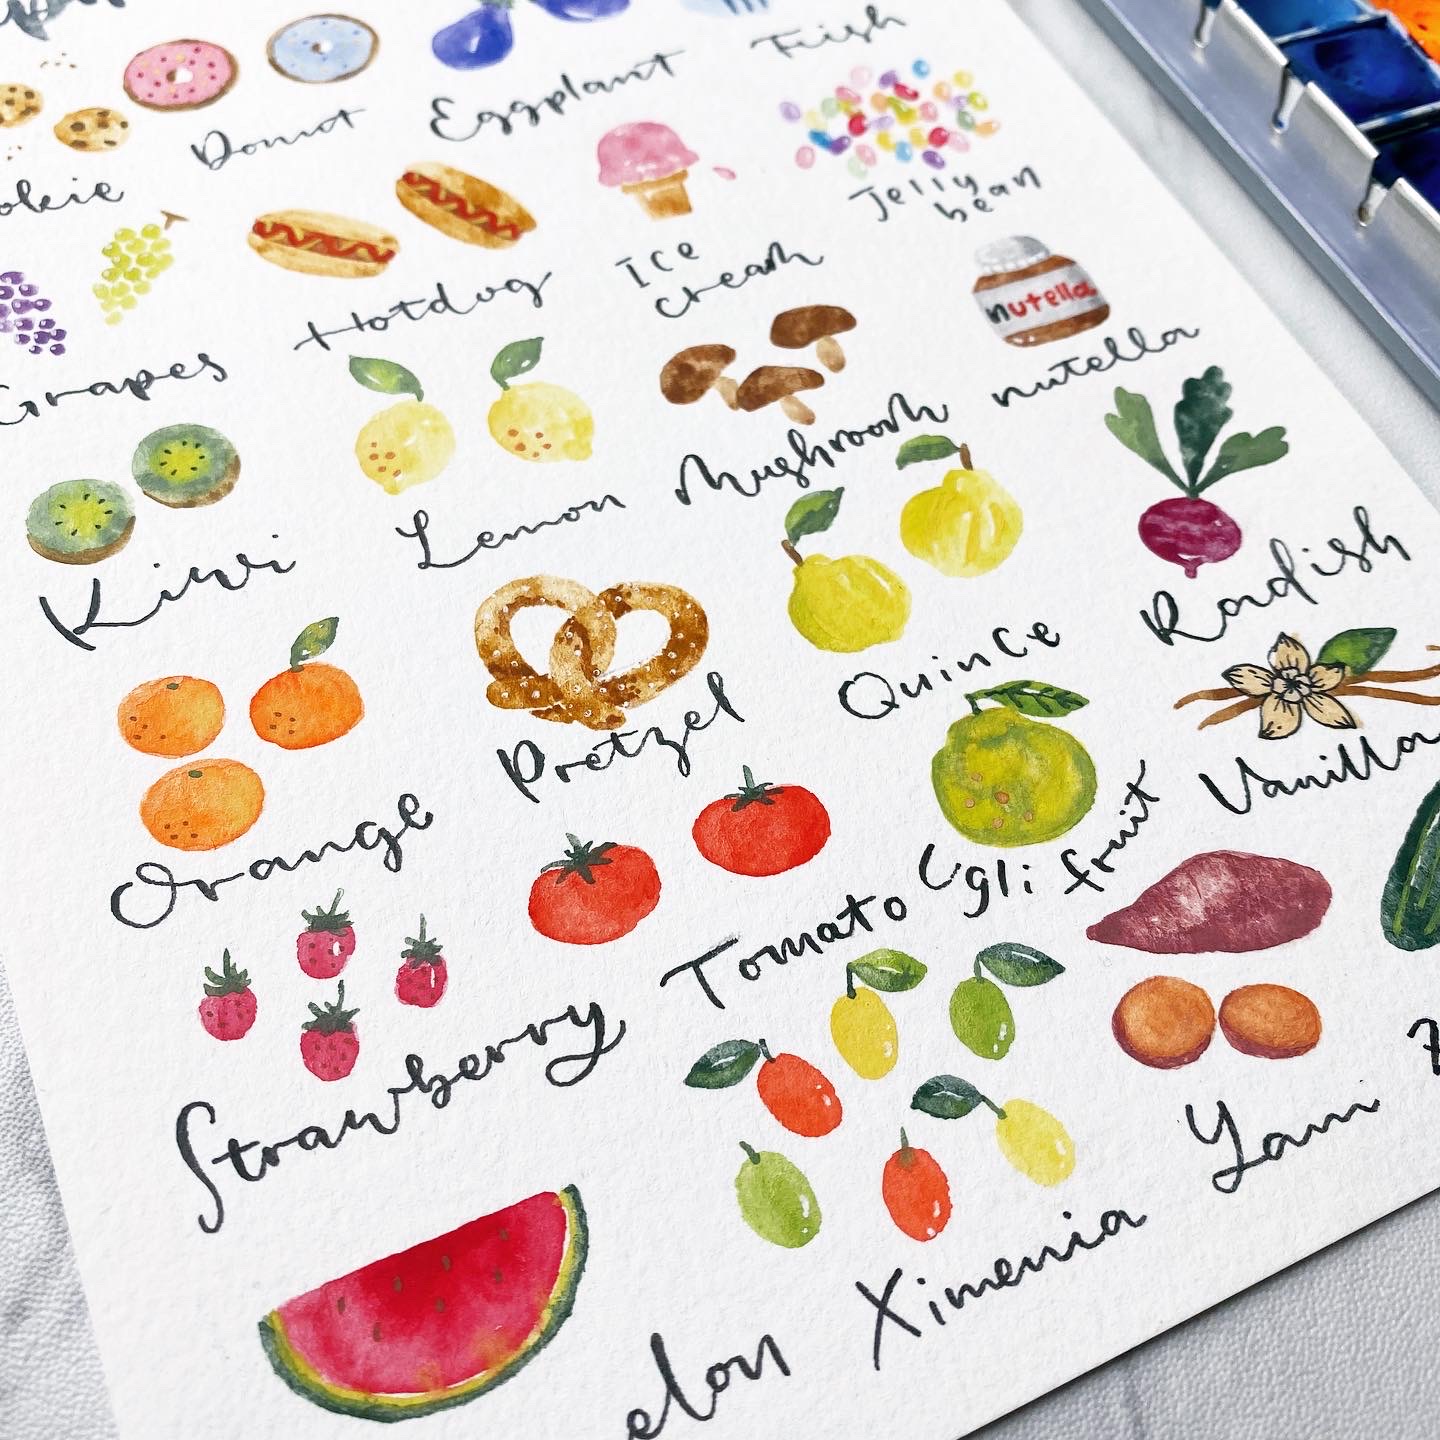 Donut
Eggplant
Fish
okie
Jelly
bean
Ice
cream
Hotdog
nutella
nutella
Grapes
Mushroom
Lemon
Kiwi
Radish
Quince
Pretzel
Vanilla
Orange
Ugli fruit
Tomato
Strawberry
Yam
Ximenia
elon